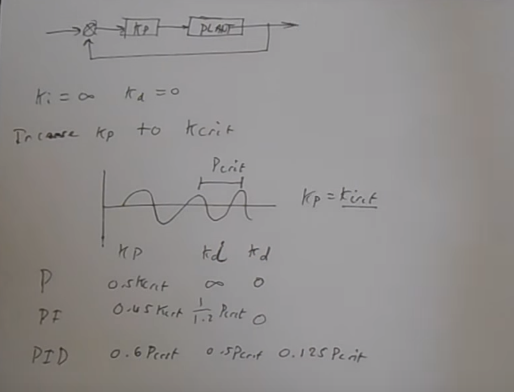 KP PLANT
Ki = ∞ Kd = 0
Increase Kp to Kcrit
Pcrit
Kp = Kcrit
KP Kd Kd
P 0.5Kcrit ∞ 0
PI 0.45 Kcrit 1/1.2 Pcrit 0
PID 0.6 Pcrit 0.5Pcrit 0.125 Pcrit